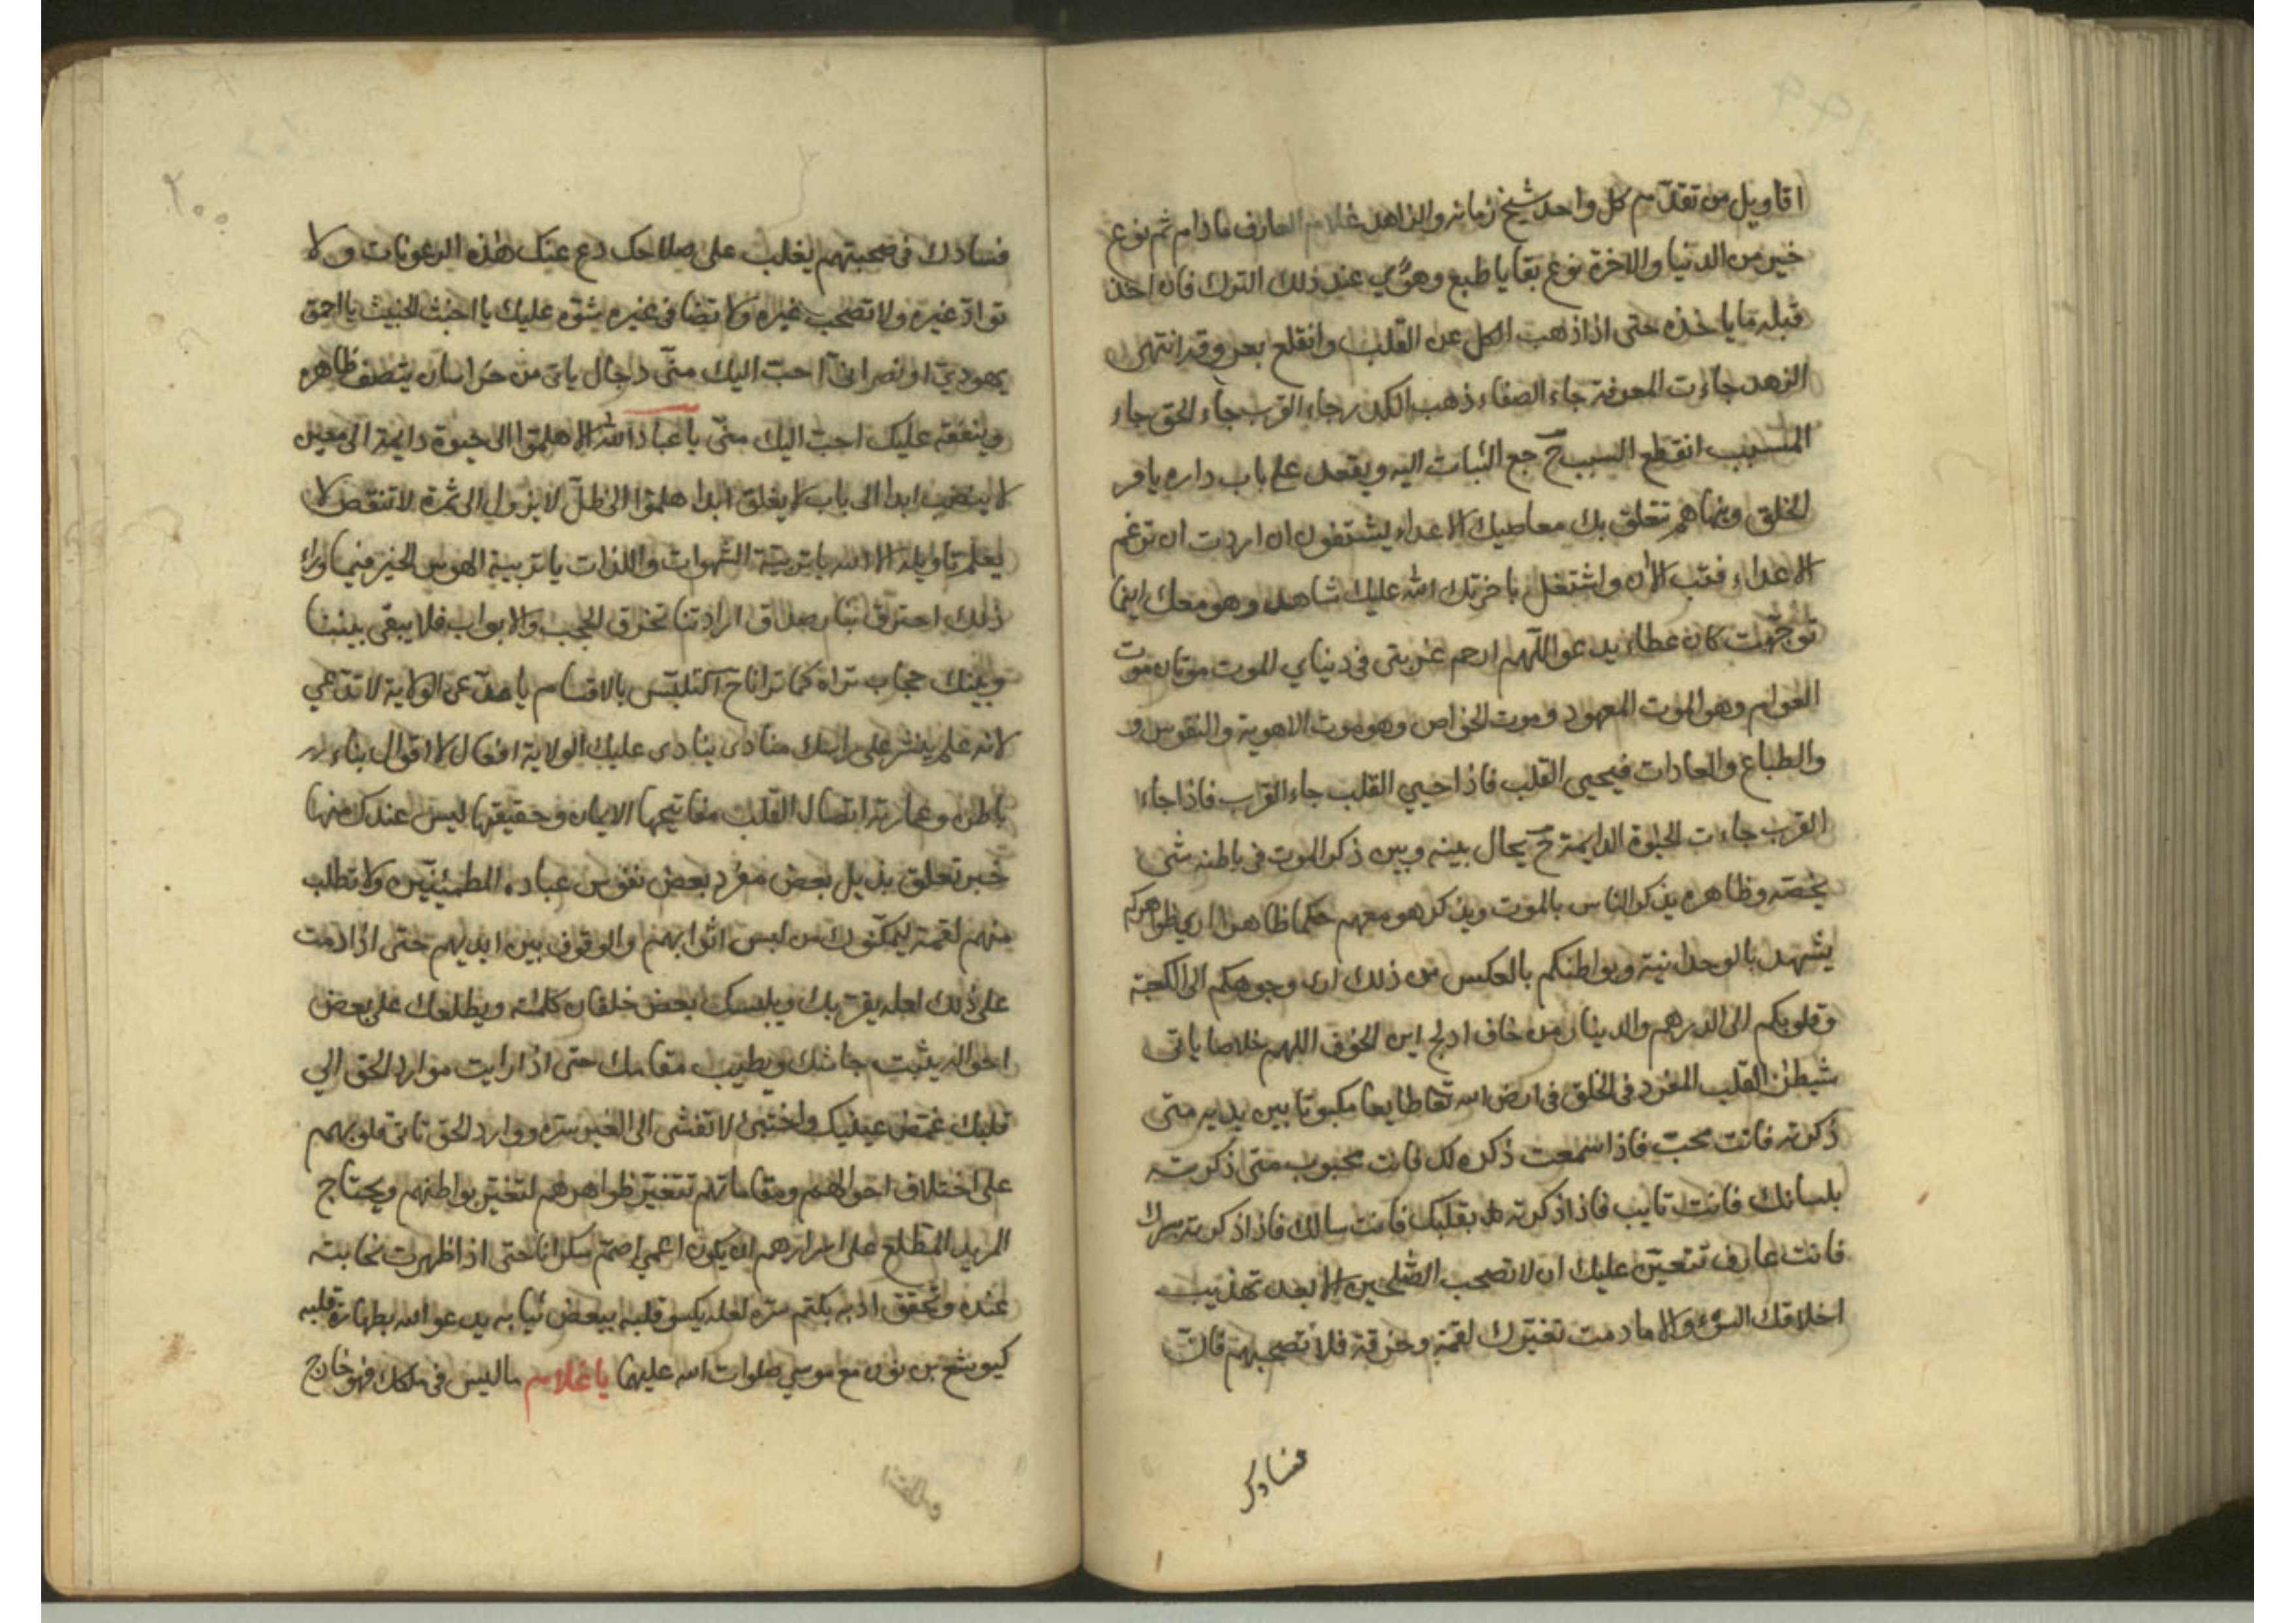 ١٩٩
اقاويل من تقدّم كل واحد شيخ زمانه والزاهد غلام العارف مادام ثم نوع
خير من الدنيا والاخرة نوع بقايا طبع وهوى عند ذلك الترك فان اخذ
قبله ما ياخذه حتى اذا ذهب الكل عن القلب وانقلع بعر وقد انتهى
الزهد جاءت المعرفة جاء الصفاء ذهب الكدر جاء القرب جاء الحق جاء
المسبب انقطع السبب ح جع الثبات اليه ويقعد على باب داره يامر
الخلق وينهاهم تتعلق بك معاصيك الاعداء يشتفون ان اردت ان ترغم
الاعداء فتب الان واشتغل باخرتك الله عليك شاهد وهو معك اينما
توجهت كان عطاء يدعو اللهم ارحم غربتى فى دنياي للموت موتان موت
العوام وهو الموت المعهود وموت الخواص وهو موت الاهوية والنفوس و
والطباع والعادات فيحيى القلب فاذا حيي القلب جاء القرب فاذا جاء
القرب جاءت الحيوة الدايمة ح يحال بينه وبين ذكر الموت فى باطنه شى
يخصه وظاهره يذكر الناس بالموت ويذكر هو معهم حكما ظاهرا ارى ظواهركم
يشهد بالوحدانية وبواطنكم بالعكس من ذلك ارى وجوهكم الى الكعبة
وقلوبكم الى الدرهم والدينار من خاف ادلج اين الخوف اللهم خلاصا ياتى
شيطن القلب المفرد فى الخلق فى ارض الله تعا طايعا مكبوتا بين يديه متى
ذكرته فانت محب فاذا سمعت ذكره لك فانت محبوب متى ذكرته
بلسانك فانت تايب فاذا ذكرته بقلبك فانت سالك فاذا ذكرته بسرك
فانت عارف تتعين عليك ان لا تصحب الصلحين الا بعد تهذيب
اخلاقك السوء والا ما دمت تغيرك لقمة وخرقة فلا تصحبهم فانّ
فسادك
٢٠٠
فسادك فى صحبتهم يغلب على صلاحك دع عنك هذه الرعونات ولا
تواد غيره ولا تصحب غيره ولا تصافى غيره شوم عليك يا اخبث الخبيث يا احمق
يهودي او نصرانى احب اليك منى دجال ياتى من خراسان يتصنف ظاهره
وينفقه عليك احب اليك منى يا عباد الله الا هلموا الى حيوة دايمة الى معين
لا ينضب ابدا الى باب لا يغلق ابدا هلموا الى ظل لا يزول الى ثمرة لا تنقص لا
يعلم تاويله الا الله يا تربية الشهوات واللذات يا تربية الهوس الخير فيما وراء
ذلك احترق بنار صدق ارادتنا تخرق الحجب والابواب فلا يبقى بيننا
وبينك حجاب تراه كما ترانا ح التلبس بالاقسام يا مدعى الولاية لا تدعي
لانه علم ينشر على راسك منادى ينادى عليك الولاية افعال لا اقوال بناء
باطن وعمارته اتصال القلب مفاتيحها الايمان وحقيقتها ليس عندك منها
خبر تعلق بذيل بعض مفرد بعض نفوس عباده المطمئنين ولا تطلب
منهم لقمة ليمكنوك من لبس اثوابهم والوقوف بين ايديهم حتى اذا دمت
على ذلك لعله يقربك ويلبسك بعض خلقان كلمته ويطلعك على بعض
احواله يثبت جاشك ويطيب مقامك حتى اذا رايت موارد الحق الي
قلبك غمض عينيك واختبئ لا تفشى الى الغير سره ووارد الحق تاتى قلوبهم
على اختلاف احوالهم ومقاماتهم تتغير ظواهرهم لتغير بواطنهم ويحتاج
المريد المطلع على اسرارهم ان يكون اعمي اصم سكرانا حتى اذا ظهرت نجابته
عنده وتحقق ادبه بكتم سره لعله يكسو قلبه ببعض ثيابه يدعو الله بطهارة قلبه
كيوشع بن نون مع موسي صلوات الله عليهما يا غلام ما ليس فى ملكك فهو خارج